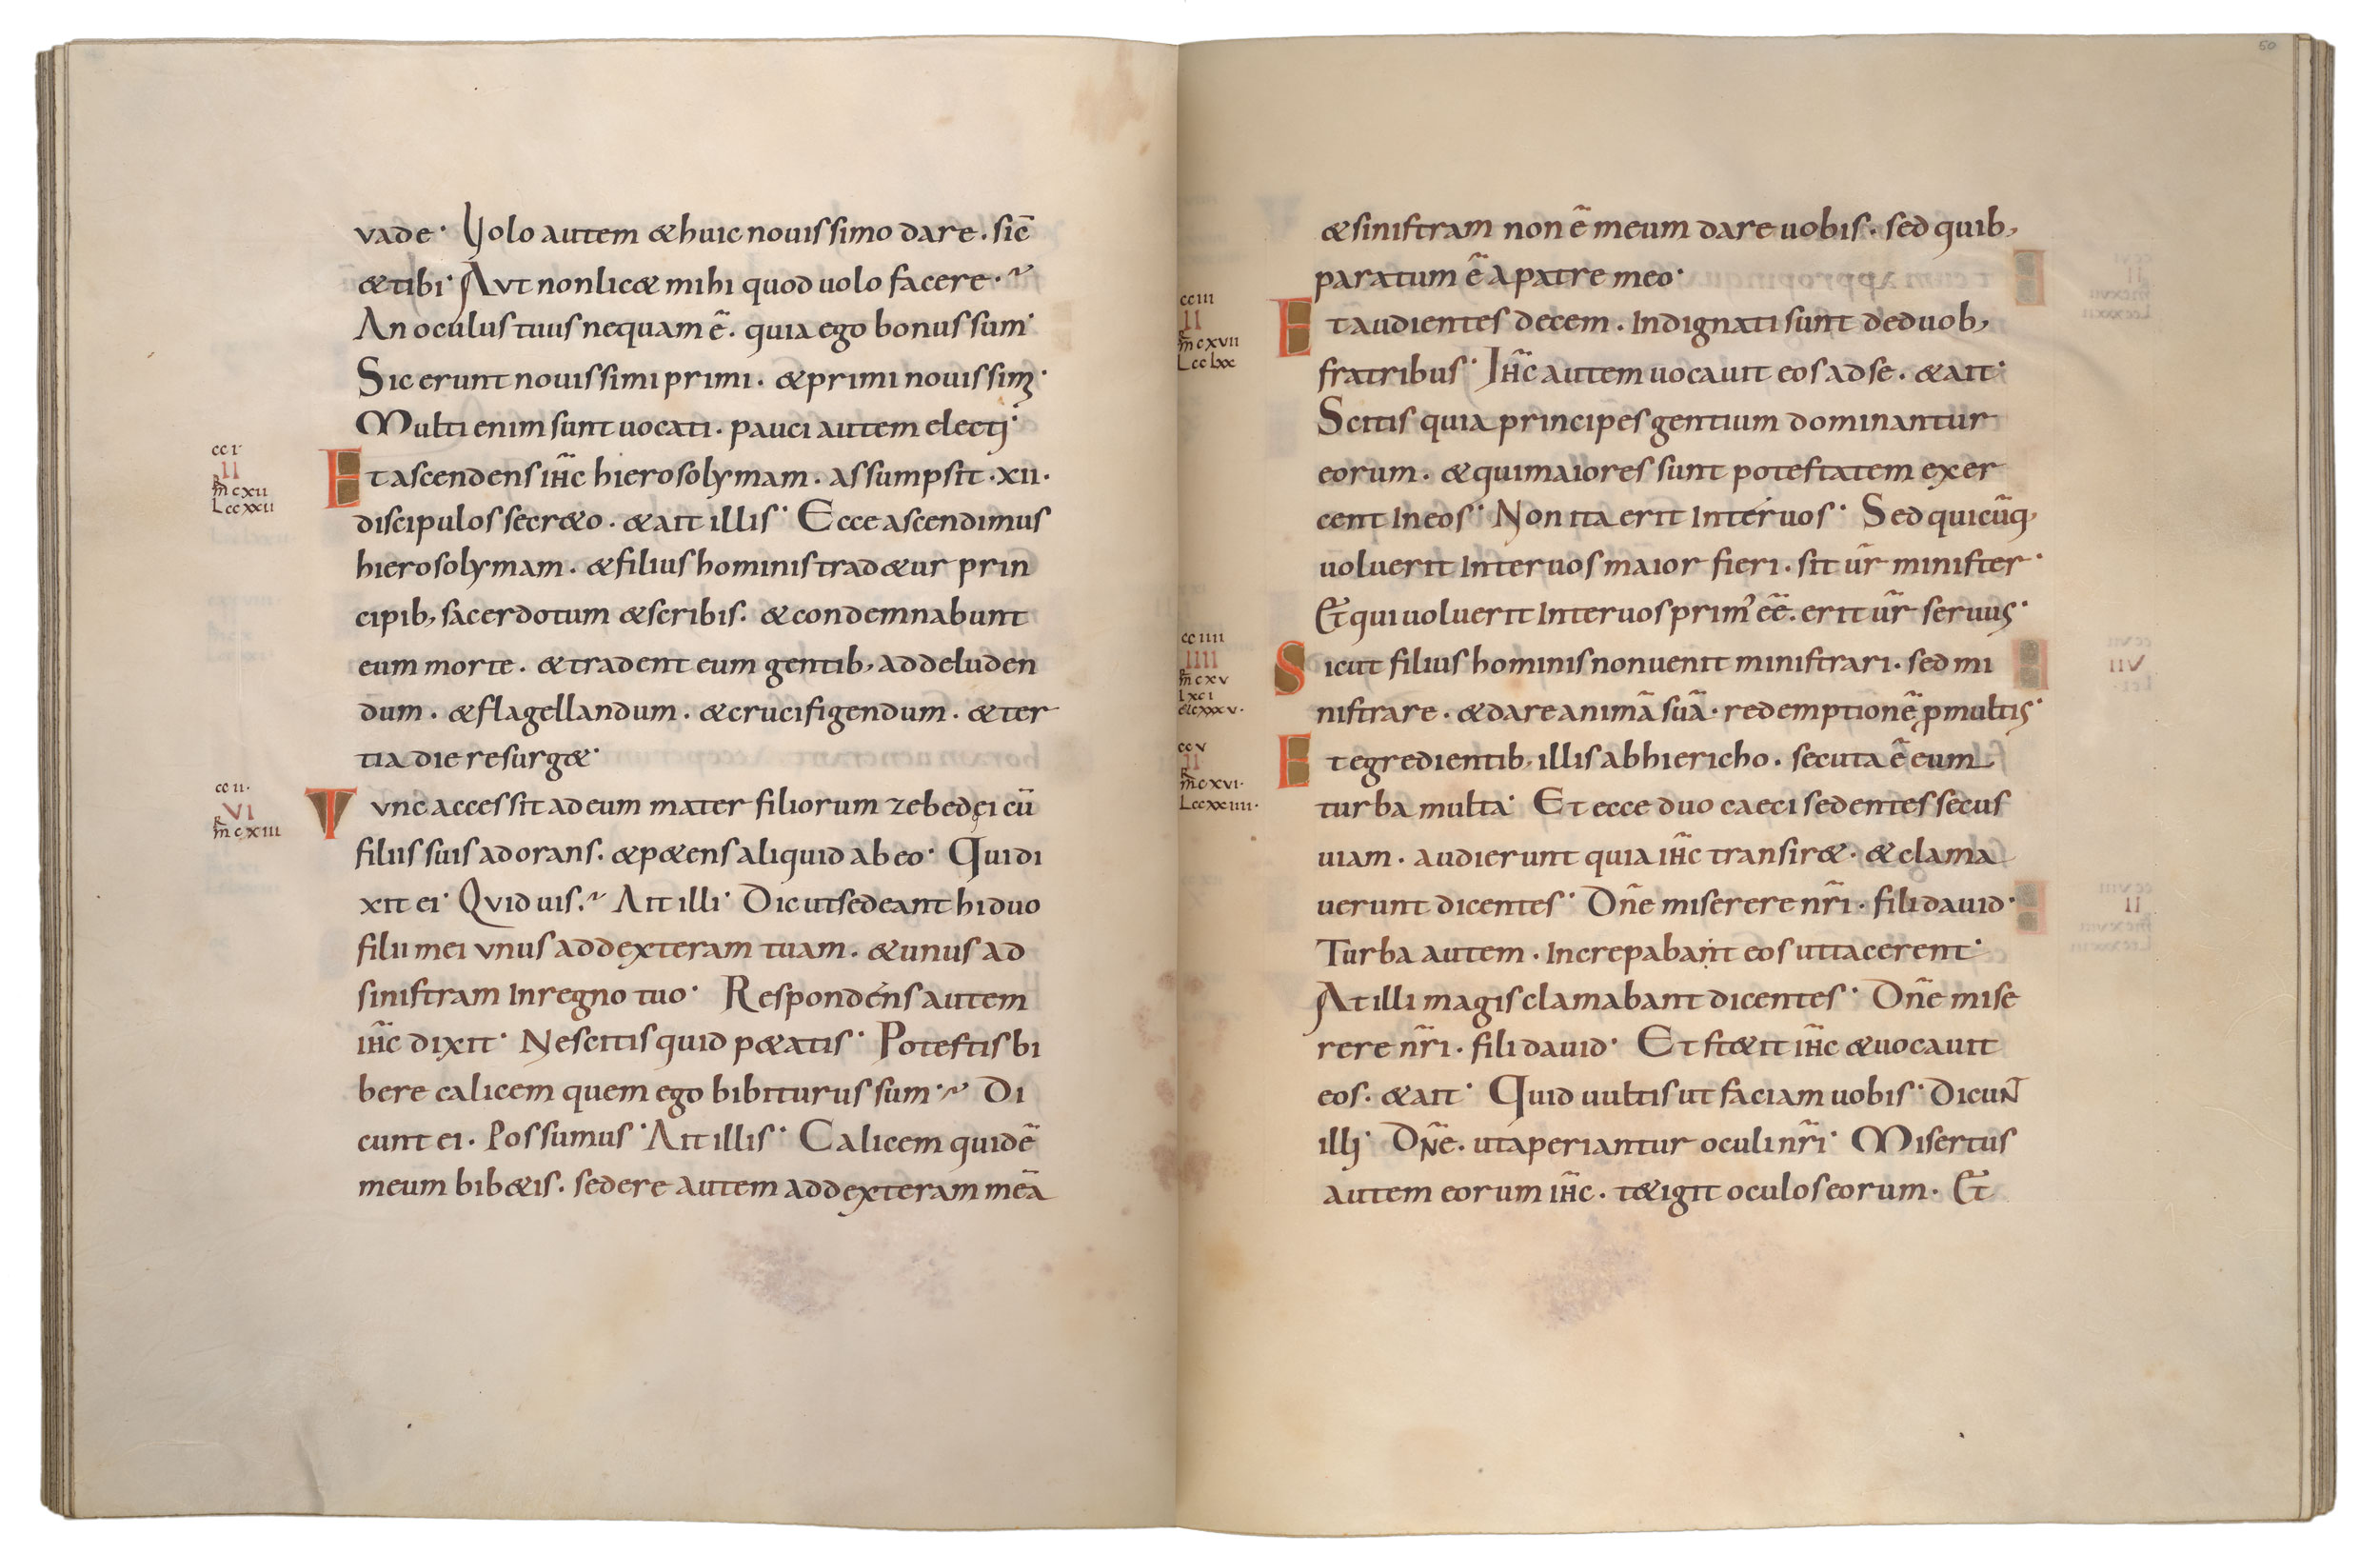 vade· Volo autem & huic nouissimo dare. sic̄
& tibi· Aut non lic& mihi quod uolo facere·
An oculus tuus nequam ē. quia ego bonus sum·
Sic erunt nouissimi primi. & primi nouissimi·
Multi enim sunt uocati. pauci autem electi·
cc i
II
mr cxii
L ccxxii
Et ascendens ih̄c hierosolymam. assumpsit ·xii·
discipulos secr&o. & ait illis· Ecce ascendimus
hierosolymam. & filius hominis trad&ur prin
cipib, sacerdotum & scribis. & condemnabunt
eum morte. & tradent eum gentib, ad deluden
dum. & flagellandum. & crucifigendum. & ter
tia die resurg&·
cc ii·
VI
mr cxiii
Tunc accessit ad eum mater filiorum zebedęi cū
filiis suis adorans. & p&ens aliquid ab eo· Qui di
xit ei· Quid uis. Ait illi· Dic ut sedeant hi duo
filii mei unus ad dexteram tuam. & unus ad
sinistram In regno tuo· Respondens autem
ih̄c dixit· Nescitis quid p&atis· Potestis bi
bere calicem quem ego bibiturus sum· Di
cunt ei. Possumus· Ait illis· Calicem quidē
meum bib&is. sedere autem ad dexteram meā
50
& sinistram non ē meum dare uobis. sed quib,
paratum ē a patre meo·
cc iii
II
mr cxvii
L cclxx
Et audientes decem. Indignati sunt de duob,
fratribus· Ih̄c autem uocauit eos ad se. & ait·
Scitis quia principes gentium dominantur
eorum. & qui maiores sunt potestatem exer
cent In eos· Non ita erit Inter uos· Sed quicūq,
uoluerit Inter uos maior fieri. sit ur̄ minister·
Et qui uoluerit Inter uos prim' eē. erit ur̄ seruus·
cc iiii
IIII
mr cxv
Sicut filius hominis non uenit ministrari. sed mi
nistrare. & dare animā suā. redemptionē p multis·
cc v
II
mr cxvi·
L ccxxiiii·
Et egredientib, illis ab hiericho. secuta ē eum
turba multa· Et ecce duo caeci sedentes secus
uiam. audierunt quia ih̄c transir&. & clama
uerunt dicentes· Dn̄e miserere nr̄i. fili dauid·
Turba autem. Increpabant eos ut tacerent·
At illi magis clamabant dicentes· Dn̄e mise
rere nr̄i. fili dauid· Et st&it ih̄c & uocauit
eos. & ait· Quid uultis ut faciam uobis· Dicunt
illi· Dn̄e. ut aperiantur oculi nr̄i· Misertus
autem eorum ih̄c. t&igit oculos eorum. Et